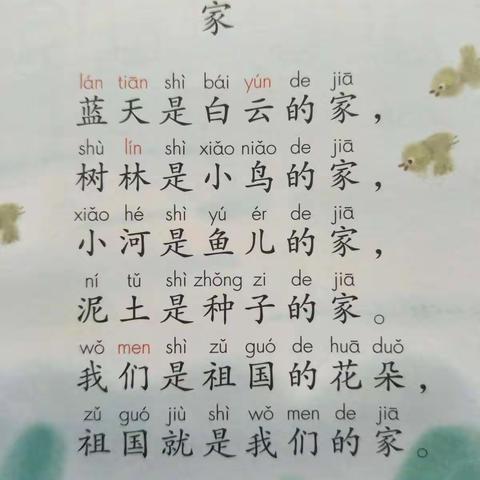 家
lán tiān shì bái yún de jiā
蓝天是白云的家，
shù lín shì xiǎo niǎo de jiā
树林是小鸟的家，
xiǎo hé shì yú ér de jiā
小河是鱼儿的家，
ní tǔ shì zhǒng zi de jiā
泥土是种子的家。
wǒ men shì zǔ guó de huā duǒ
我们是祖国的花朵，
zǔ guó jiù shì wǒ men de jiā
祖国就是我们的家。